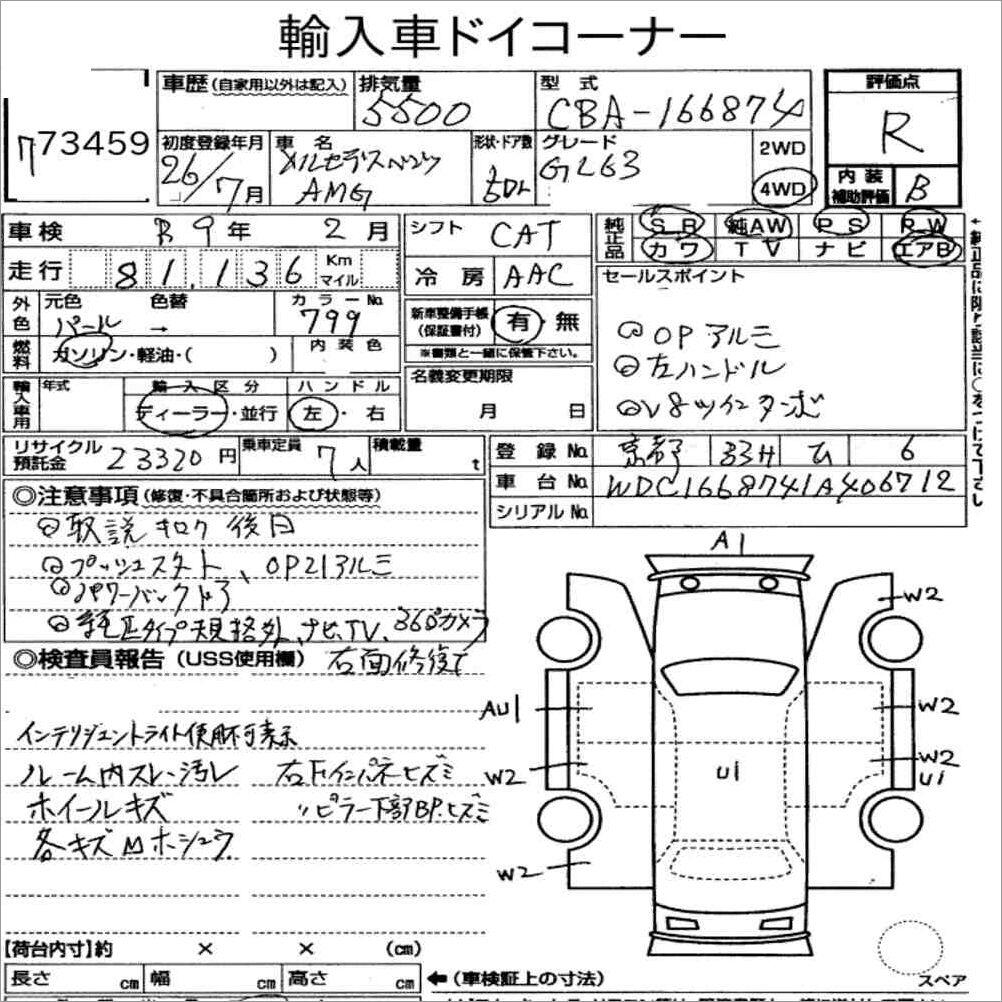 輸入車ドイコーナー
773459
車歴 (自家用以外は記入)
排気量
5500
型式
CBA-166874
評価点
R
初度登録年月
26/7月
車名
メルセデスベンツ
AMG
形状・ドア数
5D
グレード
GL63
2WD
4WD
内装
補助評価
B
車検
R 9年 2月
シフト
CAT
純正品
SR 純AW PS PW
カワ TV ナビ エアB
走行
81,136
Km
マイル
冷房
AAC
セールスポイント
◎OPアルミ
◎左ハンドル
◎V8ツインタンボ
外色
元色
パール
→
色替
カラーNo.
799
新車整備手帳
(保証書付)
有・無
※書類と一緒に保管下さい。
燃料
ガソリン・軽油・( )
内装色
輸入車用
年式
輸入区分
ディーラー・並行
ハンドル
左・右
名義変更期限
月 日
リサイクル
預託金
23320円
乗車定員
7人
積載量
t
登録No.
京都 33H ム 6
車台No.
WDC1668741A406712
シリアルNo.
◎注意事項 (修復・不具合箇所および状態等)
◎取説 キロク 後日
◎プッシュスタート、OP21アルミ
◎パワーバックドア
◎純正タイプ規格外、ナビ、TV、360°カメラ
◎検査員報告 (USS使用欄)
右面修復て
インテリジェントライト使用不可表示
ルーム内スレ・汚レ
右Fインパネヒズミ
ホイールキズ
〃ピラー下部BP.ヒズミ
各キズMホシュウ
A1
W2
AU1
W2
W2
W2
U1
U1
W2
【荷台内寸】約 × × (cm)
長さ cm
幅 cm
高さ cm
←(車検証上の寸法)
スペア